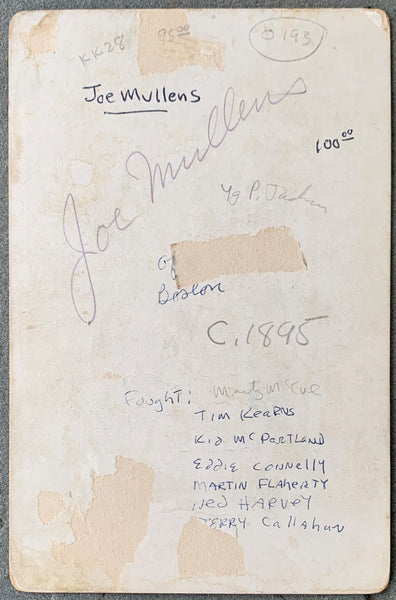 KK28
95⁰⁰
0193
Joe Mullens
Joe Mullens
100⁰⁰
Yg P. Jackson
of
Boston
C. 1895
Fought: Marty McCue
Tim Kearns
Kid McPartland
Eddie Connelly
Martin Flaherty
Ned Harvey
Jerry Callahan